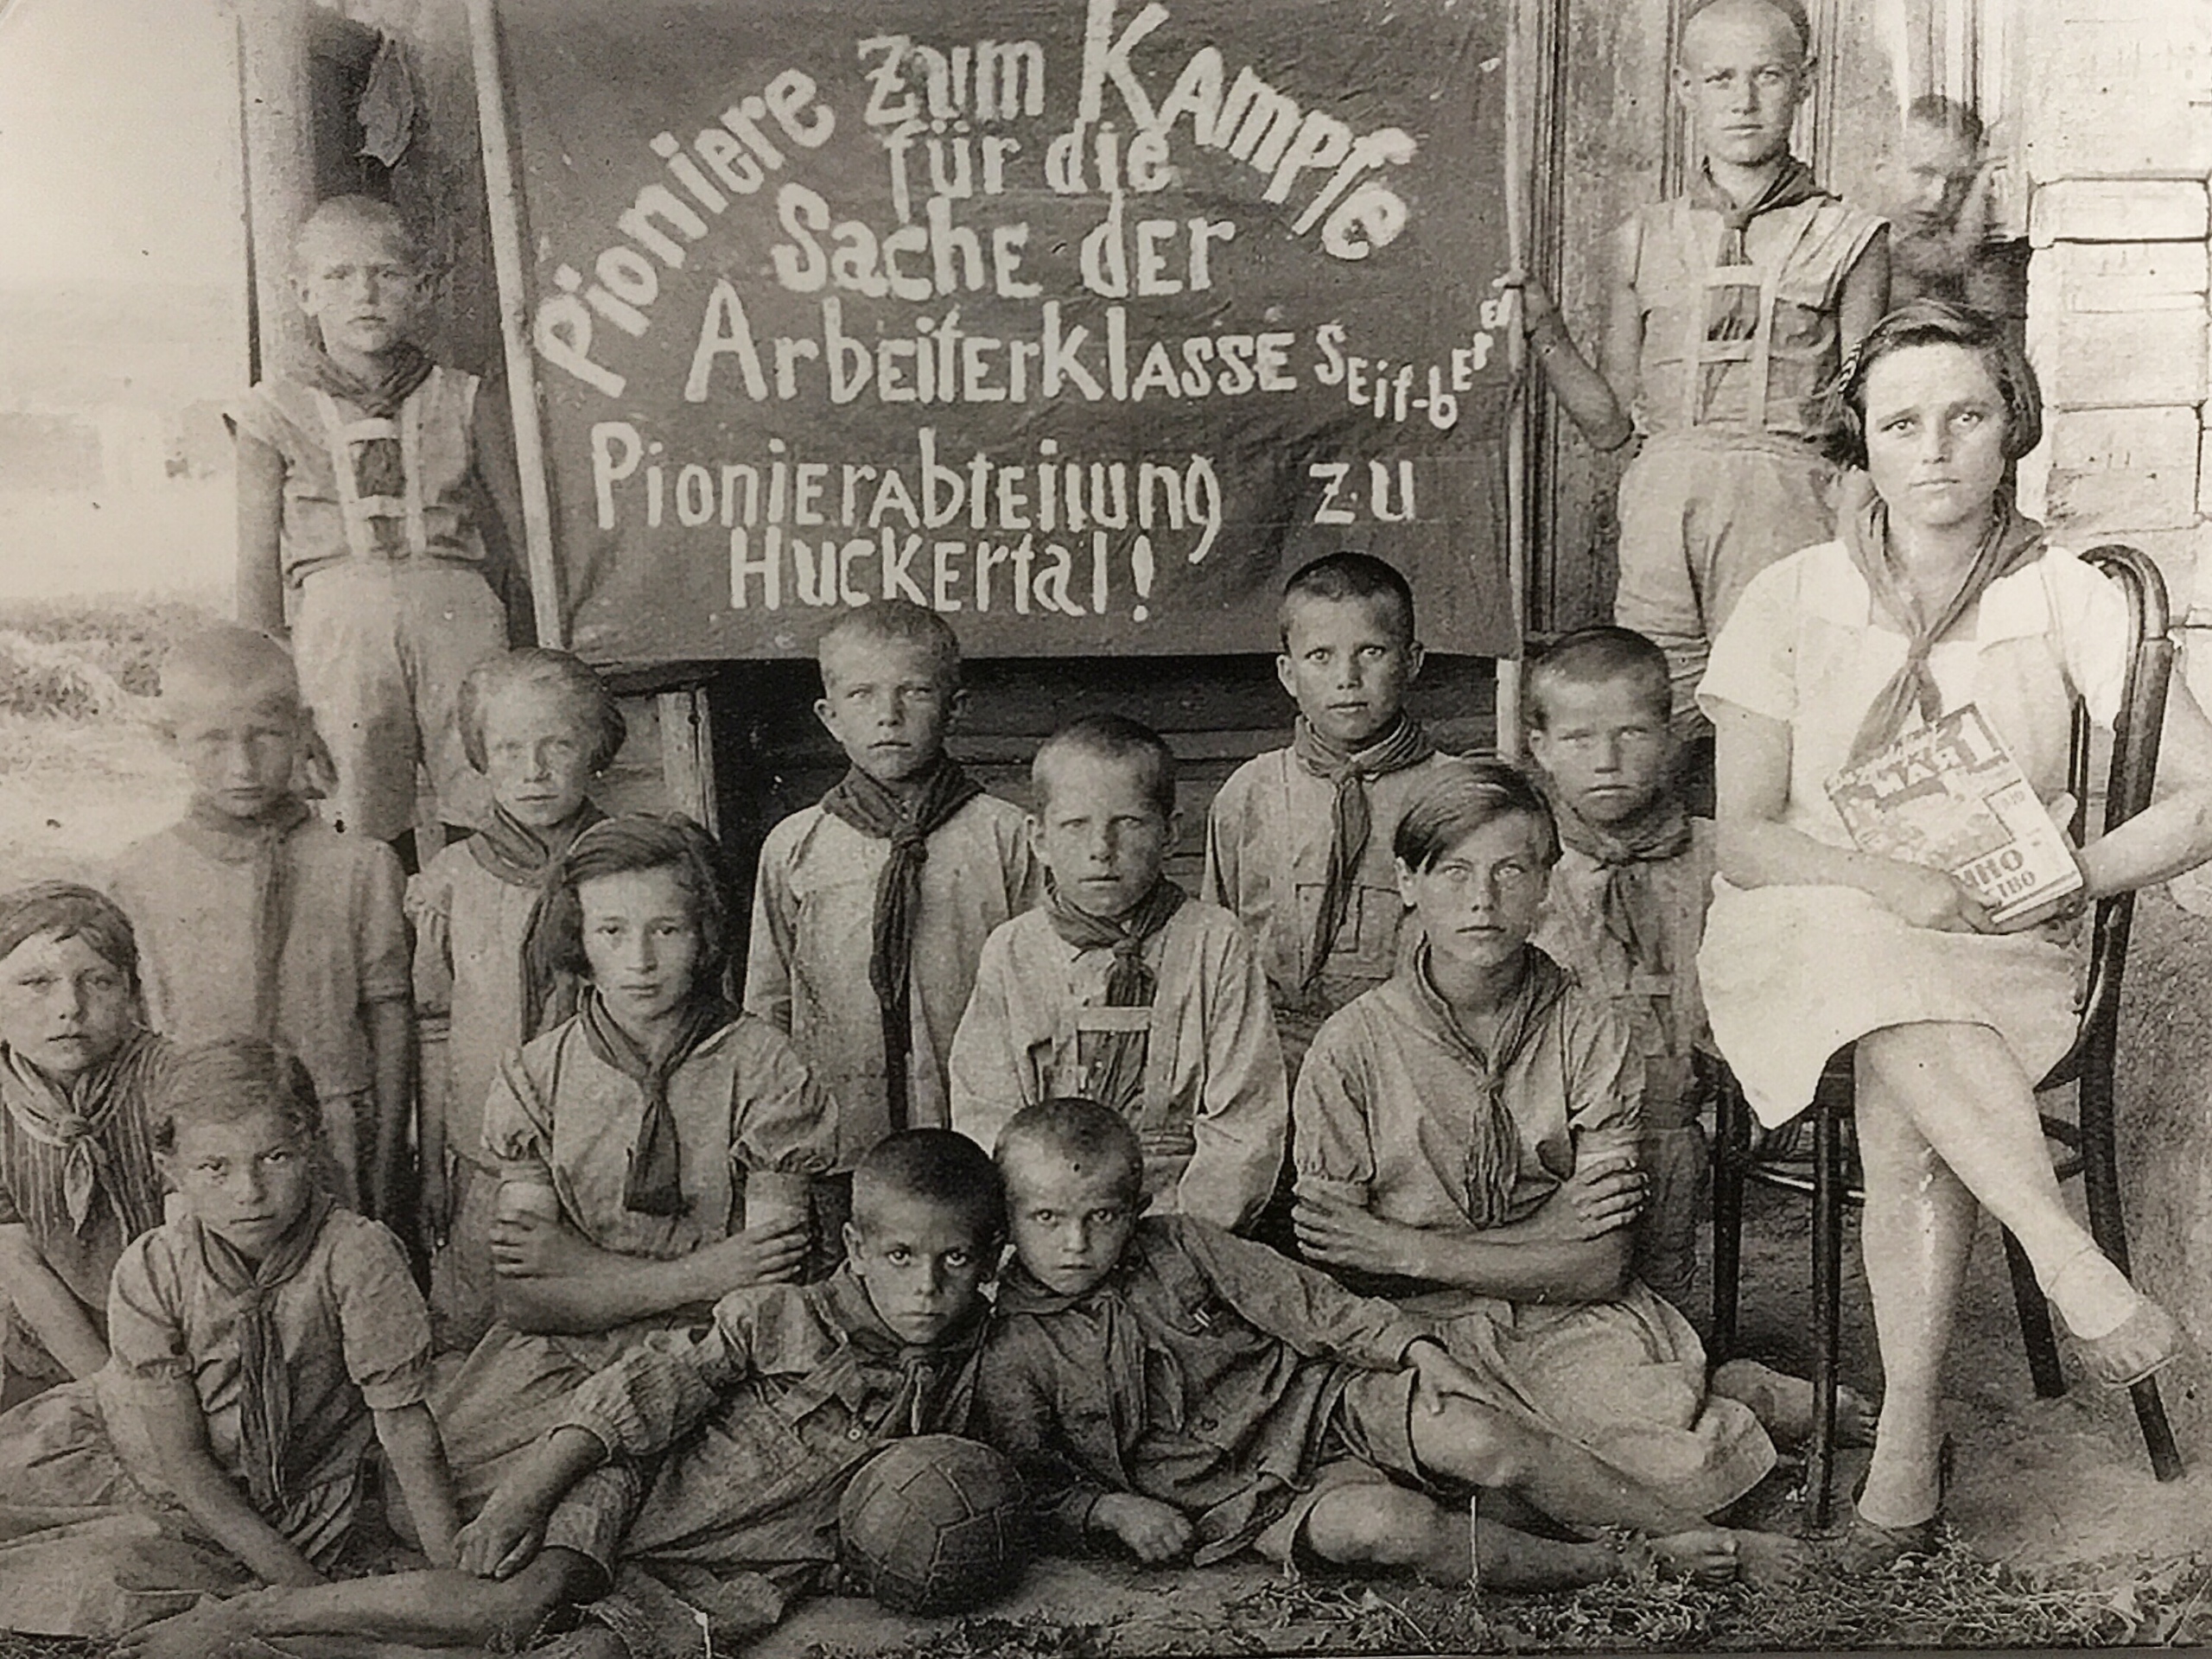 Pioniere zum Kampfe
für die
Sache der
Arbeiterklasse Seit-berei
Pionierabteilung zu
Huckertal!
МАЯ 1